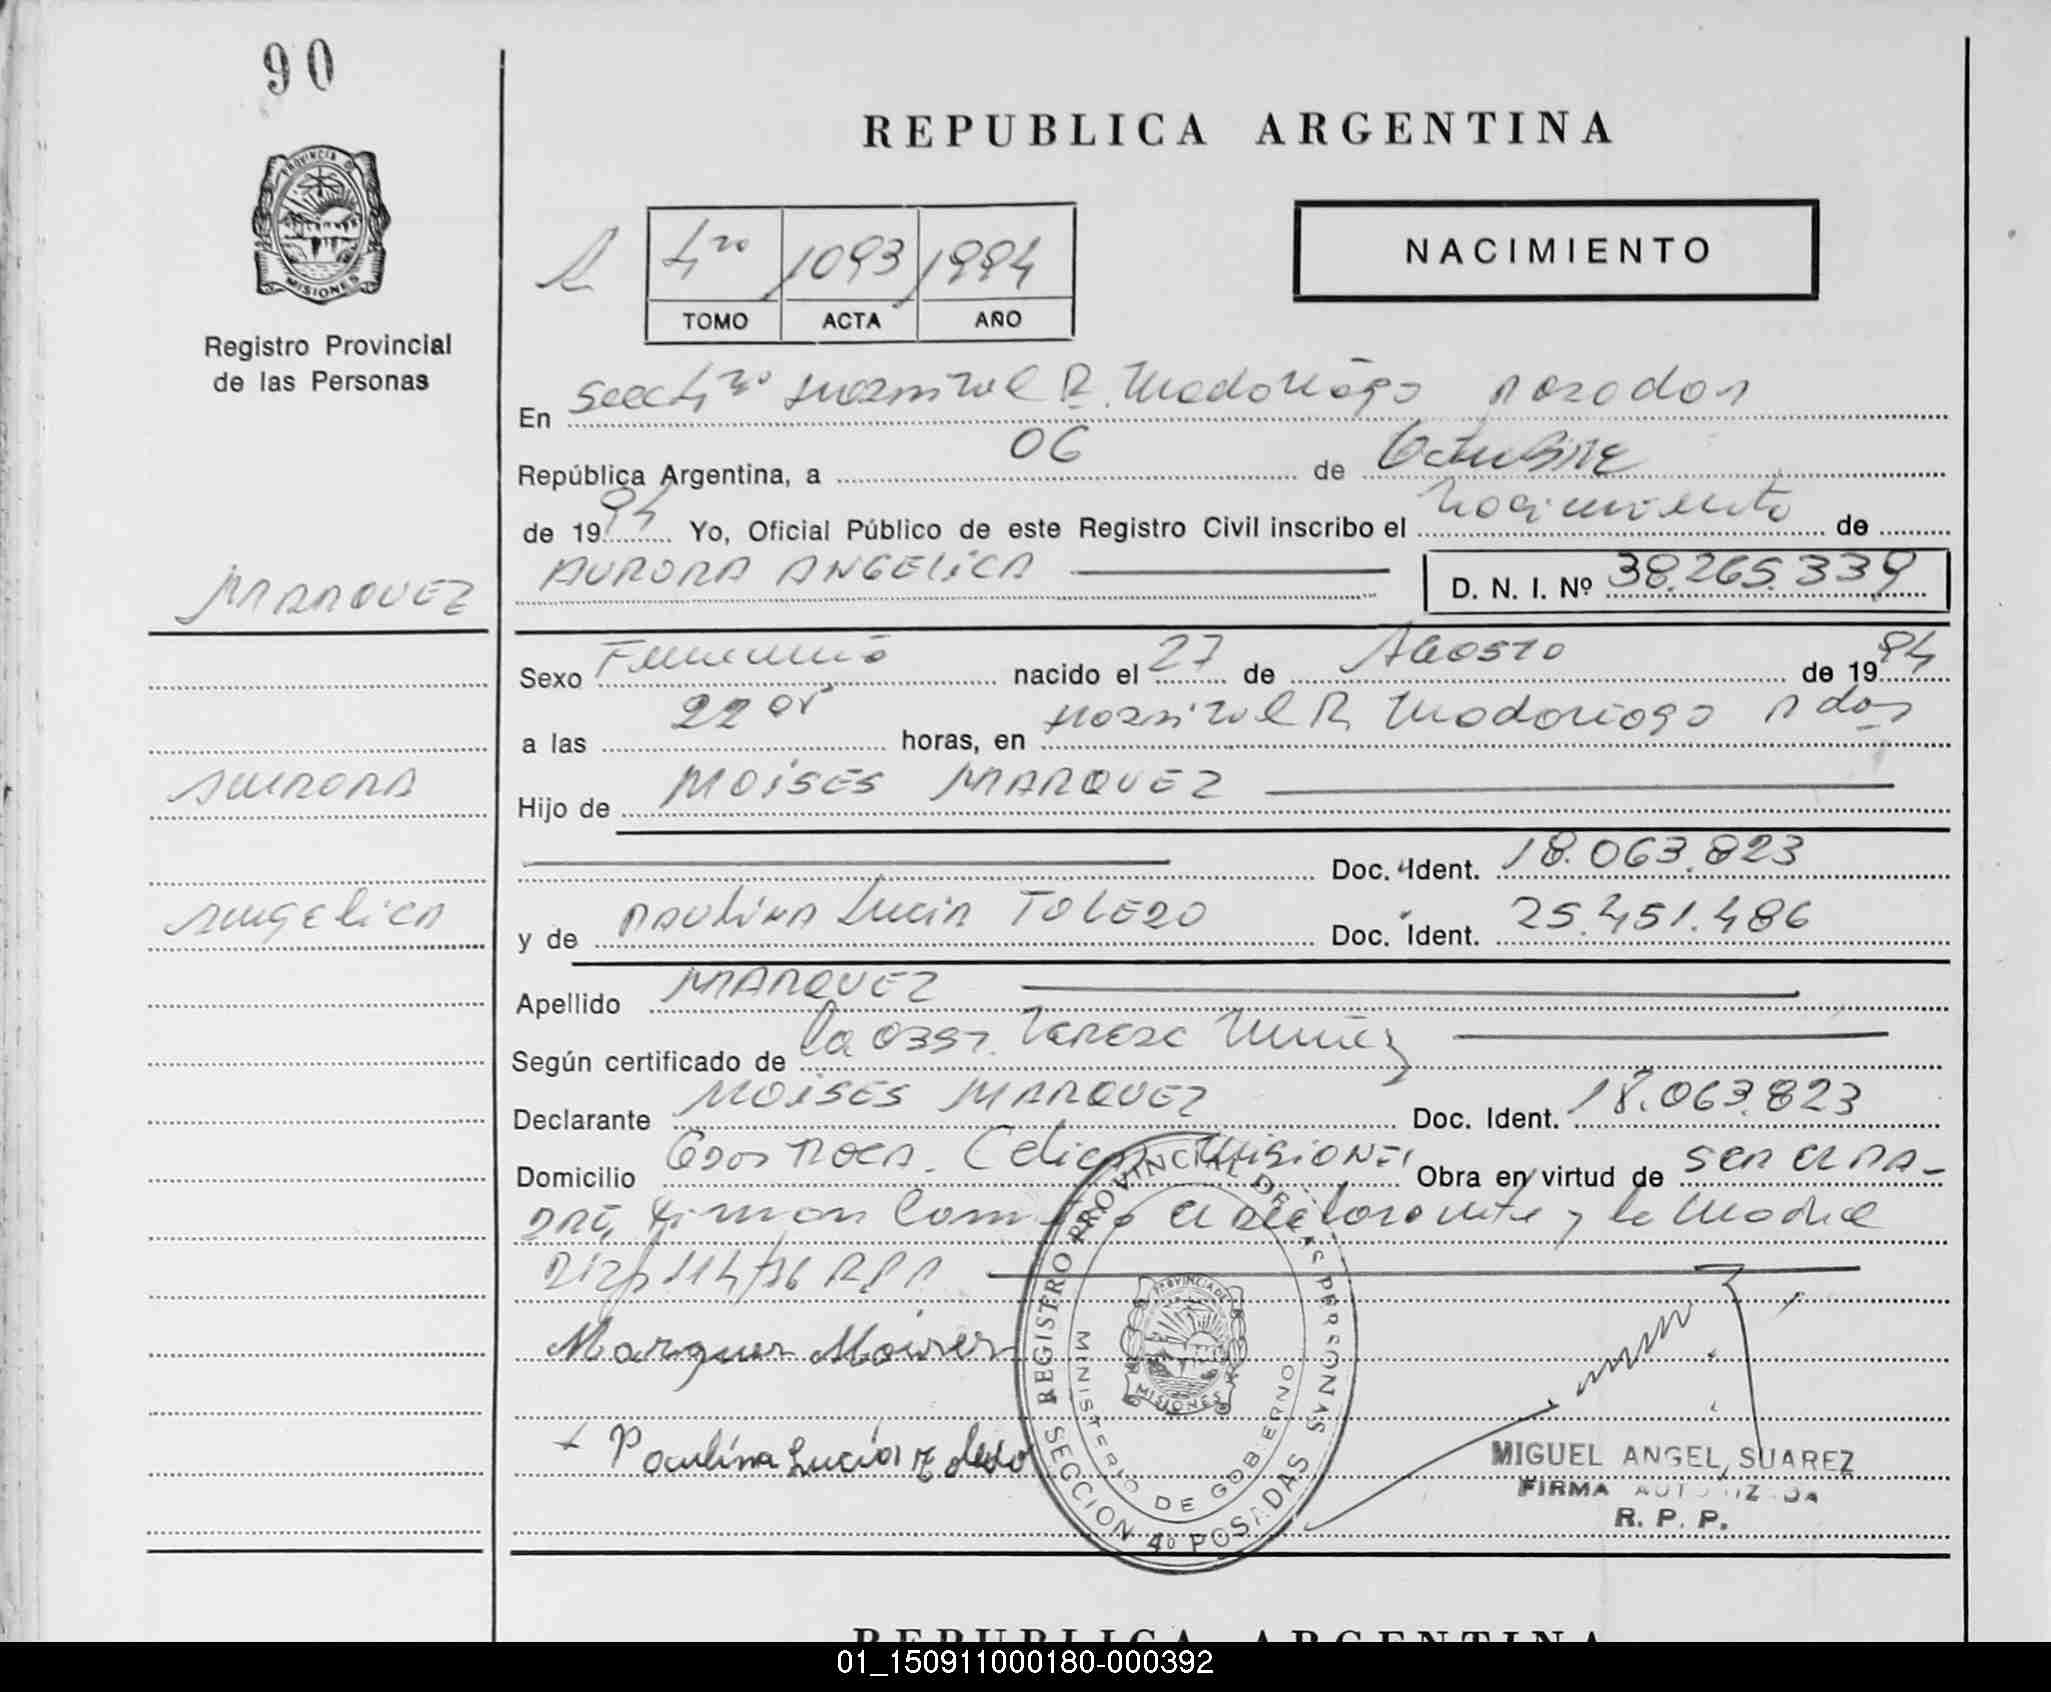 90
REPUBLICA ARGENTINA
PROVINCIA DE
MISIONES
Registro Provincial
de las Personas
4to 1093 1994
TOMO ACTA AÑO
NACIMIENTO
En Secc 4to Hospital R. Madariaga Posadas
República Argentina, a 06 de Octubre
de 1994 Yo, Oficial Público de este Registro Civil inscribo el nacimiento de
MARQUEZ
AURORA ANGELICA
D. N. I. Nº 38.265.339
Sexo Femenino nacido el 27 de Agosto de 1994
a las 22 horas, en Hospital R. Madariaga Pdas
AURORA
Hijo de MOISES MARQUEZ
Doc. Ident. 18.063.823
ANGELICA
y de PAULINA Lucia TOLEDO Doc. Ident. 25.451.486
Apellido MARQUEZ
Según certificado de la Obst. Teresa Nuñez
Declarante MOISES MARQUEZ Doc. Ident. 18.063.823
Domicilio Gdor ROCA. Misiones Obra en virtud de ser el PA-
DRE, Firman el declarante y la Madre
Disp 114/ R.P.P.
Marquez Moises
Paulina Lucía Toledo
REGISTRO PROVINCIAL DE LAS PERSONAS
MINISTERIO DE GOBIERNO
PROVINCIA DE
MISIONES
SECCION 4º POSADAS
MIGUEL ANGEL SUAREZ
FIRMA AUTORIZADA
R. P. P.
REPUBLICA ARGENTINA
01_150911000180-000392